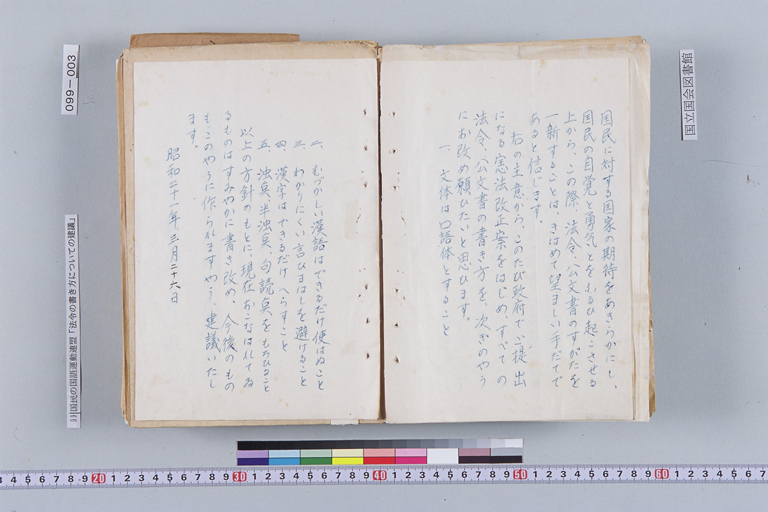 国民に対する国家の期待をあきらかにし、
国民の自覚と勇気とをふるひ起こさせる
上から、この際、法令、公文書のすがたを
一新することは、きはめて望ましい手だてで
あると信じます。
右の主意から、このたび政府で御提出
になる憲法改正案をはじめ、すべての
法令、公文書の書き方を、次ぎのやう
にお改め願ひたいと思ひます。
一、文体は口語体とすること
二、むづかしい漢語はできるだけ使はぬこと
三、わかりにくい言ひまはしを避けること
四、漢字はできるだけへらすこと
五、濁点、半濁点、句読点をもちひること
以上の方針のもとに、現在おこなはれてゐ
るものはすみやかに書き改め、今後のもの
もこのやうに作られますやう、建議いたし
ます。
昭和二十一年三月二十六日
099-003
国立国会図書館
国民の国語運動連盟「法令の書き方についての建議」
3 4 5 6 7 8 9 20 1 2 3 4 5 6 7 8 9 30 1 2 3 4 5 6 7 8 9 40 1 2 3 4 5 6 7 8 9 50 1 2 3 4 5 6 7 8 9 60 1 2 3 4 5 6 7